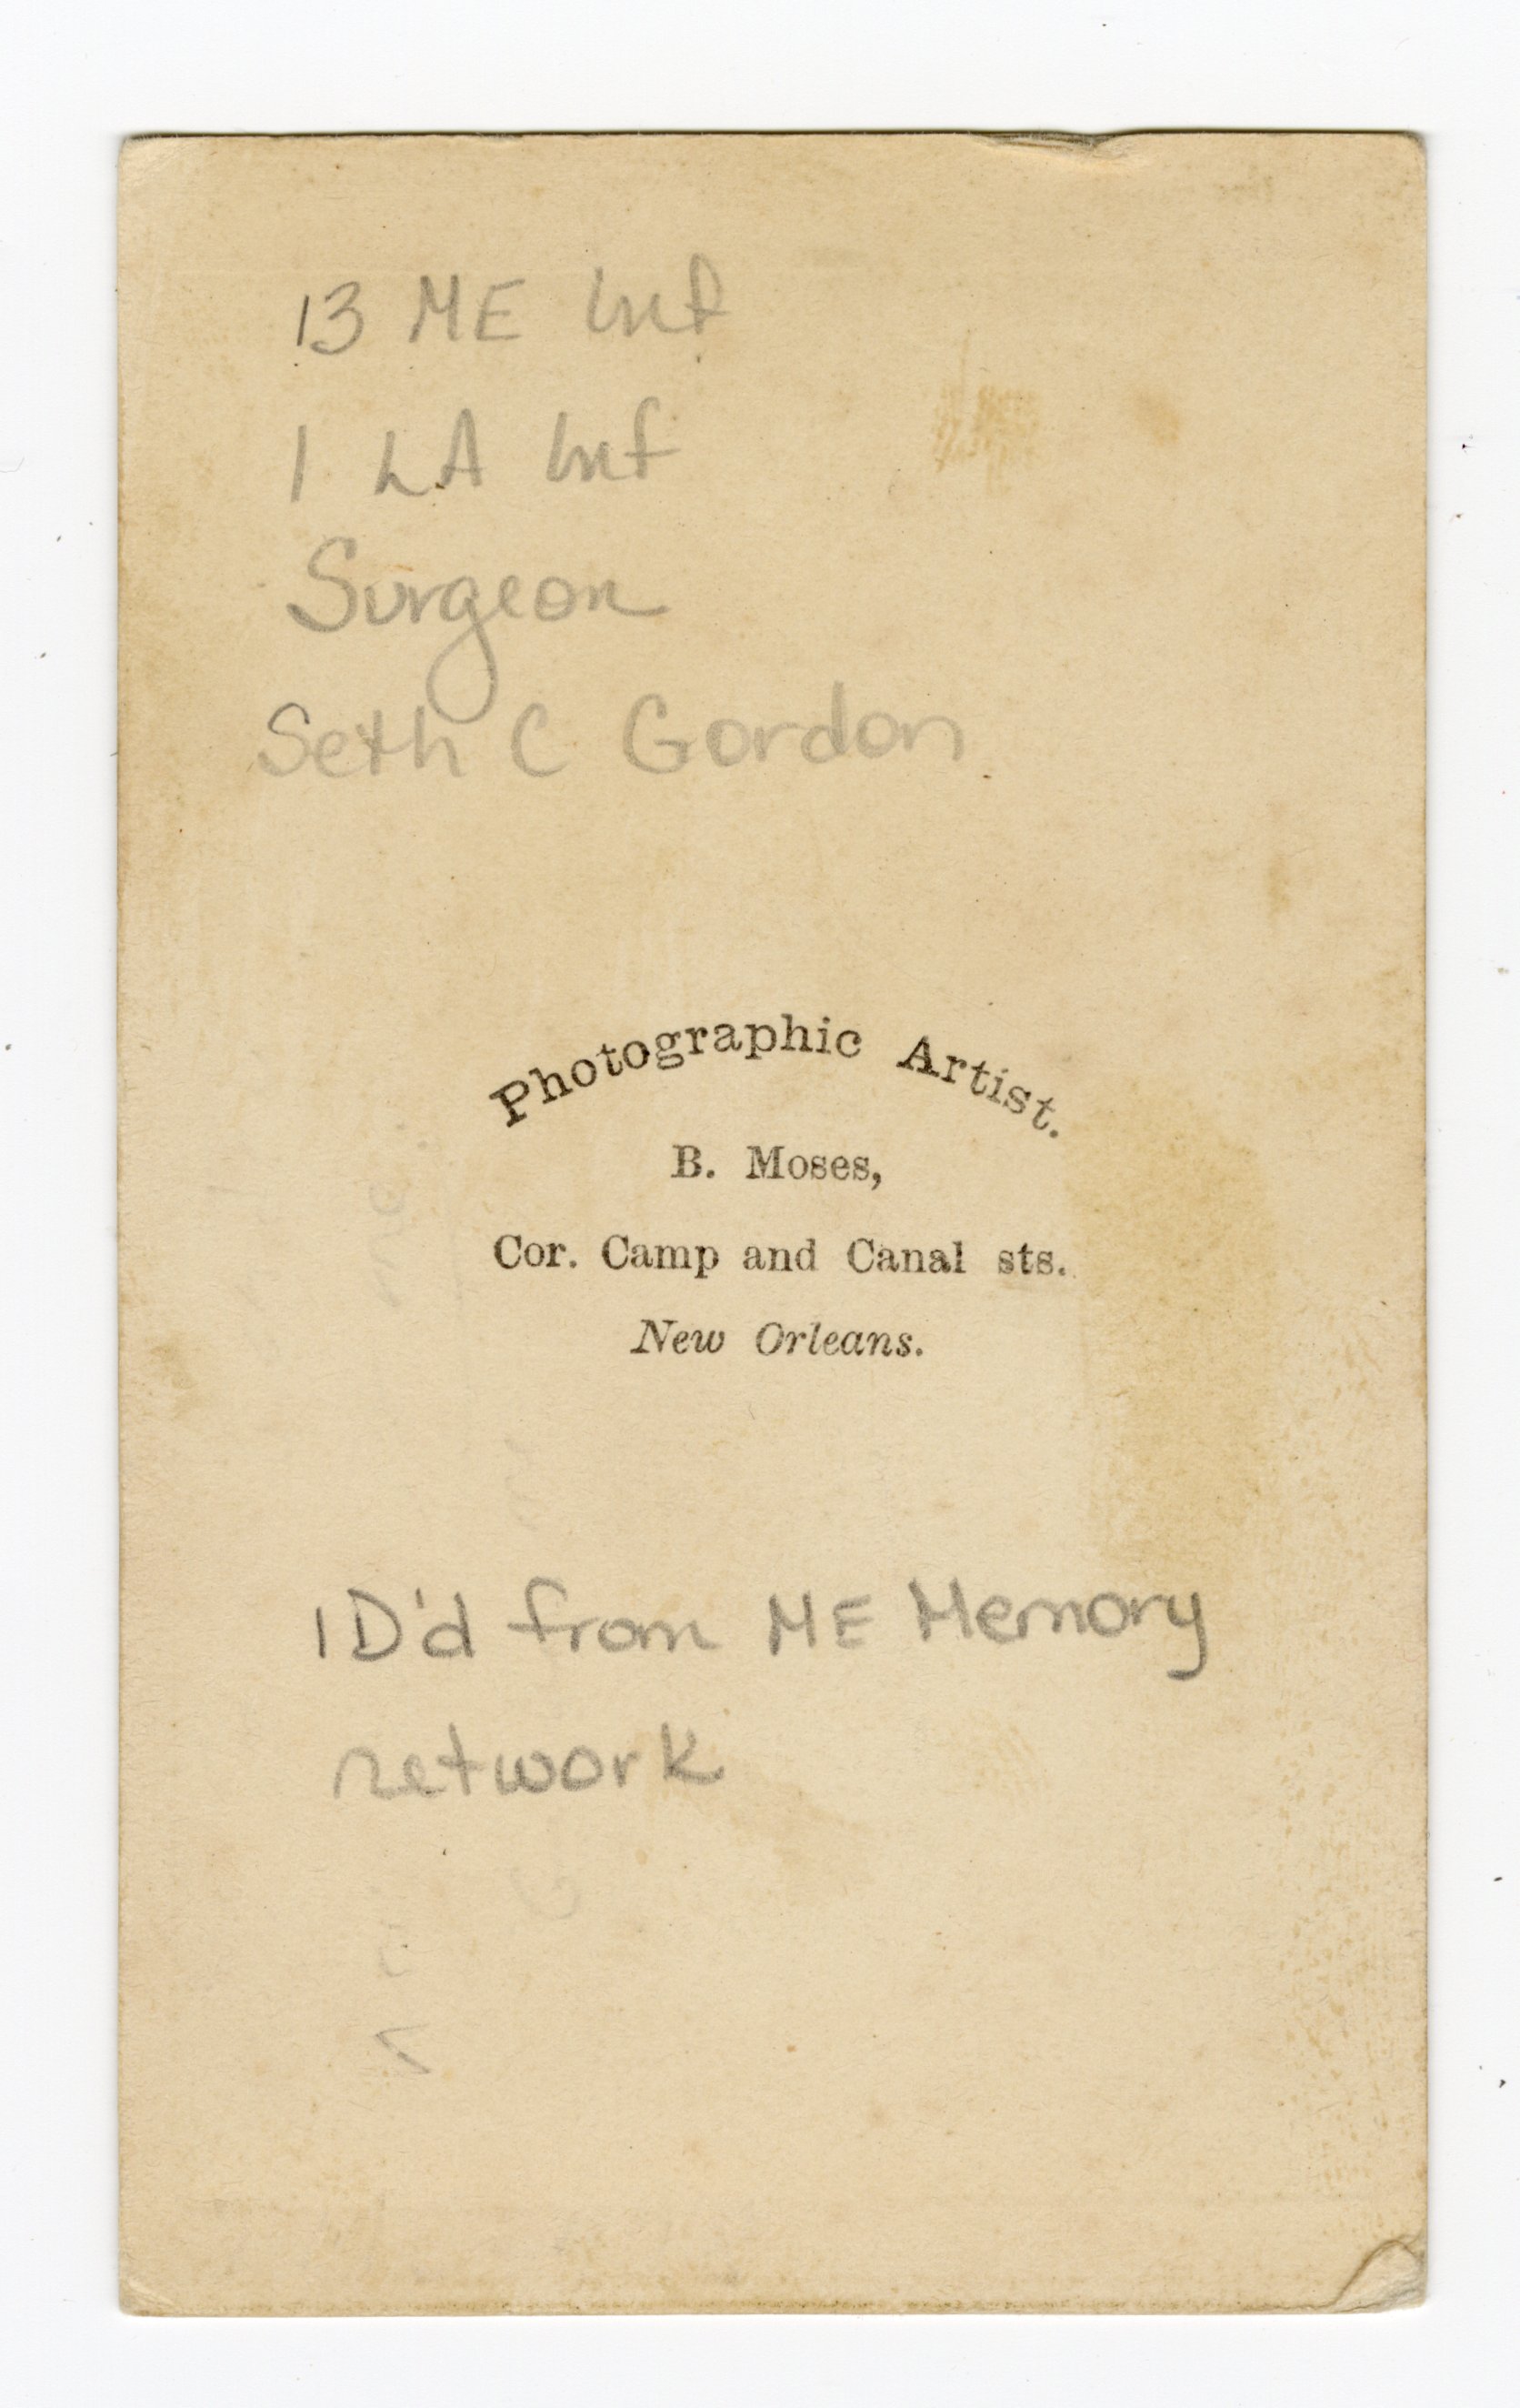 13 ME Inf
1 LA Inf
Surgeon
Seth C Gordon
Photographic Artist.
B. Moses,
Cor. Camp and Canal sts.
New Orleans.
ID'd from ME Memory
network